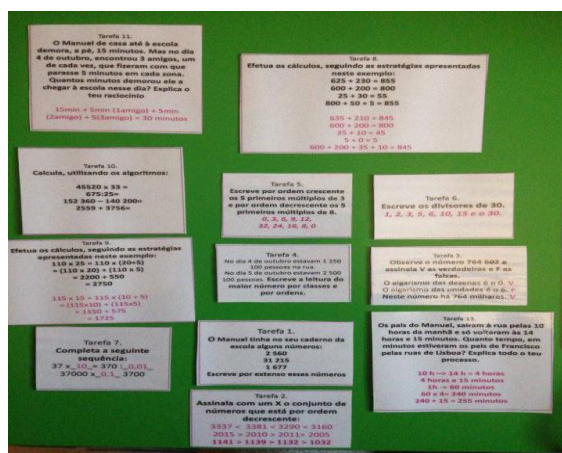 Tarefa 11.
O Manuel de casa até à escola
demora, a pé, 15 minutos. Mas no dia
4 de outubro, encontrou 3 amigos, um
de cada vez, que fizeram com que
parasse 5 minutos em cada zona.
Quantos minutos demorou ele a
chegar à escola nesse dia? Explica o
teu raciocínio
15min + 5min (1amigo) + 5min
(2amigo) + 5(3amigo) = 30 minutos
Tarefa 8.
Efetua os cálculos, seguindo as estratégias apresentadas
neste exemplo:
625 + 230 = 855
600 + 200 = 800
25 + 30 = 55
800 + 50 + 5 = 855
635 + 210 = 845
600 + 200 = 800
35 + 10 = 45
5 + 0 = 5
600 + 200 + 35 + 10 = 845
Tarefa 10.
Calcula, utilizando os algoritmos:
45520 x 33 =
675:25=
152 360 – 140 200=
2559 + 3756=
Tarefa 5.
Escreve por ordem crescente
os 5 primeiros múltiplos de 3
e por ordem decrescente os 5
primeiros múltiplos de 8.
0, 3, 6, 9, 12,
32, 24, 16, 8, 0
Tarefa 6.
Escreve os divisores de 30.
1, 2, 3, 5, 6, 10, 15 e o 30.
Tarefa 9.
Efetua os cálculos, seguindo as estratégias
apresentadas neste exemplo:
110 x 25 = 110 x (20+5)
= (110 x 20) + (110 x 5)
= 2200 + 550
= 2750
115 x 15 = 115 x (10 + 5)
= (115x10) + (115x5)
= 1150 + 575
= 1725
Tarefa 4.
No dia 4 de outubro estavam 1 250
100 pessoas na rua.
No dia 5 de outubro estavam 2 500
100 pessoas. Escreve a leitura do
maior número por classes e
por ordens.
Tarefa 3.
Observe o número 764 602 e
assinala V as verdadeiras e F as
falsas.
O algarismo das dezenas é o 0. V
O algarismo das unidades é o 6. F
Neste número há 764 milhares. V
Tarefa 7.
Completa a seguinte
sequência:
37 x_10_= 370 :_0,01_
37000 x_0,1_ 3700
Tarefa 1.
O Manuel tinha no seu caderno da
escola alguns números:
2 560
31 215
1 677
Escreve por extenso esses números
Tarefa 13.
Os pais do Manuel, saíram à rua pelas 10
horas da manhã e só voltaram às 14
horas e 15 minutos. Quanto tempo, em
minutos estiveram os pais de Francisco
pelas ruas de Lisboa? Explica todo o teu
processo.
10 h --> 14 h = 4 horas
4 horas e 15 minutos
1h -> 60 minutos
60 x 4= 240 minutos
240 + 15 = 255 minutos
Tarefa 2.
Assinala com um X o conjunto de
números que está por ordem
decrescente:
3337 < 3381 < 3290 = 3160
2015 > 2010 > 2011= 2005
1141 > 1139 > 1132 > 1032